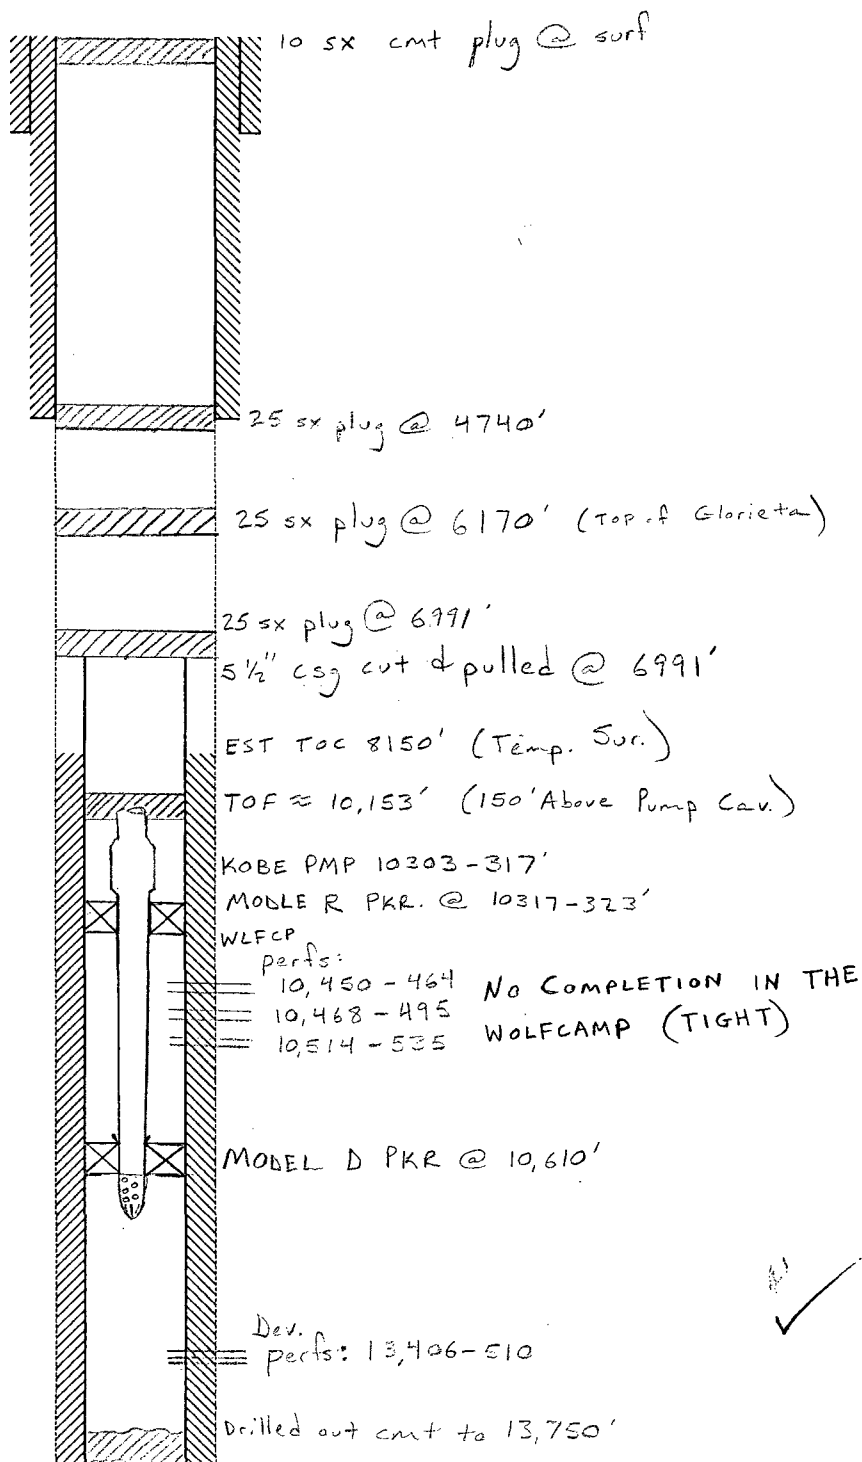 10 sx cmt plug @ surf
25 sx plug @ 4740'
25 sx plug @ 6170' (Top of Glorieta)
25 sx plug @ 6991'
5 1/2" csg cut & pulled @ 6991'
EST TOC 8150' (Temp. Sur.)
TOF ≈ 10,153' (150' Above Pump Cav.)
KOBE PMP 10303-317'
MODLE R PKR. @ 10317-323'
WLFCP
perfs:
10,450-464
10,468-495
10,514-535
NO COMPLETION IN THE
WOLFCAMP (TIGHT)
MODEL D PKR @ 10,610'
Dev.
perfs: 13,406-510
Drilled out cmt to 13,750'